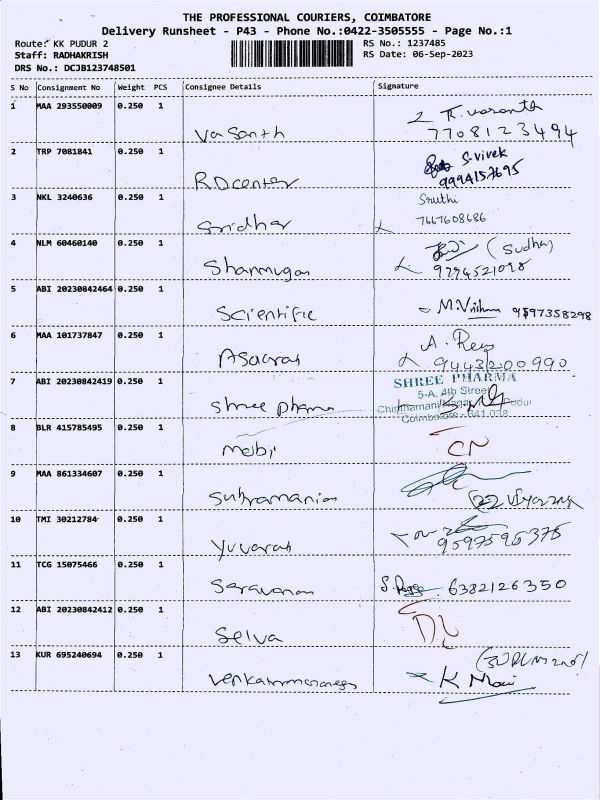 THE PROFESSIONAL COURIERS, COIMBATORE
Delivery Runsheet - P43 - Phone No.:0422-3505555 - Page No.:1
Route: KK PUDUR 2
RS No.: 1237485
Staff: RADHAKRISH
RS Date: 06-Sep-2023
DRS No.: DCJB123748501
S No Consignment No Weight PCS Consignee Details Signature
1 MAA 293550009 0.250 1 Vasanth
7708123494
2 TRP 7081841 0.250 1 R.D center S.vivek
9994157695
3 NKL 3240636 0.250 1 Sridhar Sruthi
7667608686
4 NLM 60460140 0.250 1 Shanmugan (Sudha)
5 ABI 20230842464 0.250 1 Scientific 9597358298
6 MAA 101737847 0.250 1
9443200990
7 ABI 20230842419 0.250 1 Shree pharma SHREE PHARMA
5-A, 4th Street
Coimbatore - 641 038
8 BLR 415785495 0.250 1 mobi CN
9 MAA 861334607 0.250 1 Subramanian
10 TMI 30212784 0.250 1 Yuvaraj
9597595375
11 TCG 15075466 0.250 1 Saravanan 6382126350
12 ABI 20230842412 0.250 1 Selva DL
13 KUR 695240694 0.250 1 K